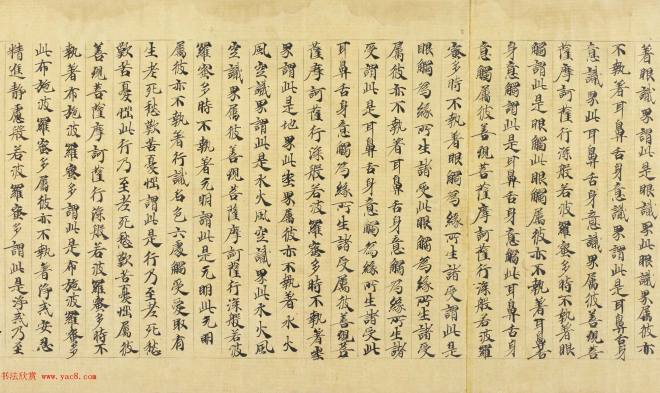 著眼識界謂此是眼識界此眼識界屬彼亦
不執著耳鼻舌身意識界謂此是耳鼻舌身
意識界此耳鼻舌身意識界屬彼善現菩
薩摩訶薩行深般若波羅蜜多時不執著眼
觸謂此是眼觸此眼觸屬彼亦不執著耳鼻舌
身意觸謂此是耳鼻舌身意觸此耳鼻舌身
意觸屬彼善現菩薩摩訶薩行深般若波羅
蜜多時不執著眼觸為緣所生諸受謂此是
眼觸為緣所生諸受此眼觸為緣所生諸受
屬彼亦不執著耳鼻舌身意觸為緣所生諸
受謂此是耳鼻舌身意觸為緣所生諸受此
耳鼻舌身意觸為緣所生諸受屬彼善現菩
薩摩訶薩行深般若波羅蜜多時不執著地
界謂此是地界此地界屬彼亦不執著水火
風空識界謂此是水火風空識界此水火風
空識界屬彼善現菩薩摩訶薩行深般若波
羅蜜多時不執著无明謂此是无明此无明
屬彼亦不執著行識名色六處觸受愛取有
生老死愁歎苦憂惱謂此是行乃至老死愁
歎苦憂惱此行乃至老死愁歎苦憂惱屬彼
善現菩薩摩訶薩行深般若波羅蜜多時不
執著布施波羅蜜多謂此是布施波羅蜜多
此布施波羅蜜多屬彼亦不執著淨戒安忍
精進靜慮般若波羅蜜多謂此是淨戒乃至
书法欣赏
www.yac8.com